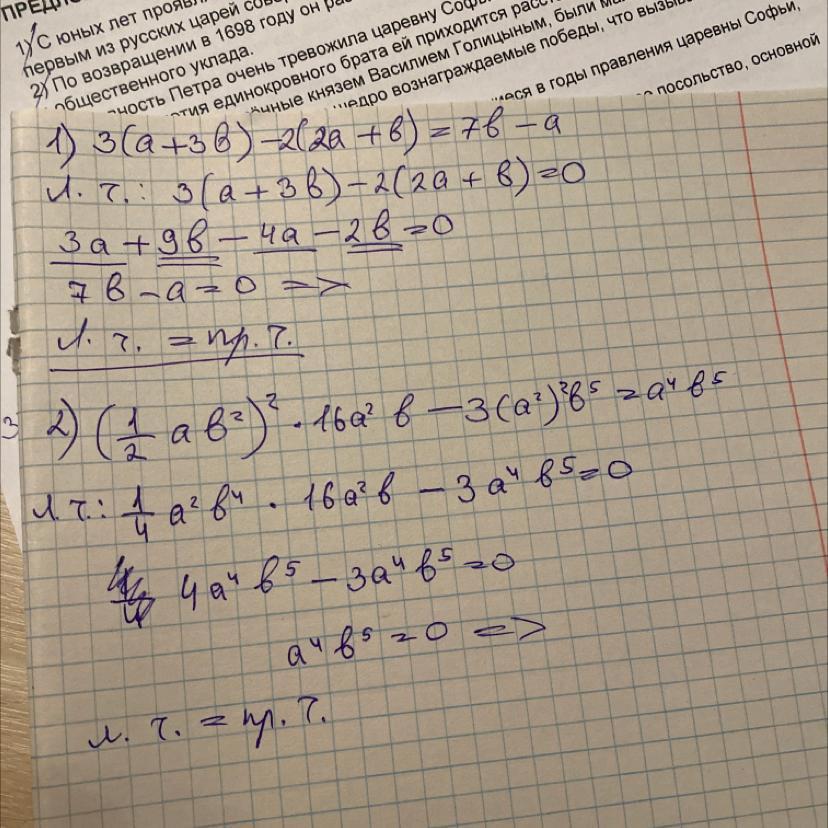 ПРЕДЛО
1) С юных лет проявл
первым из русских царей сове
2) По возвращении в 1698 году он ра
общественного уклада.
ность Петра очень тревожила царевну Софь
тия единокровного брата ей приходится расст
чные князем Василием Голицыным, были ма
щедро вознаграждаемые победы, что вызыва
иеся в годы правления царевны Софьи,
посольство, основной
1) 3(а+3в)-2(2а+в)=7в-а
Л. ч.: 3(а+3в)-2(2а+в)=0
3а+9в-4а-2в=0
7в-а=0 =>
Л. ч. = пр. ч.
3
2) (1/2 ав²)² · 16а²в - 3(а²)²в⁵ = а⁴в⁵
Л. ч.: 1/4 а²в⁴ · 16а²в - 3а⁴в⁵=0
4а⁴в⁵-3а⁴в⁵=0
а⁴в⁵=0 =>
л. ч. = пр. ч.